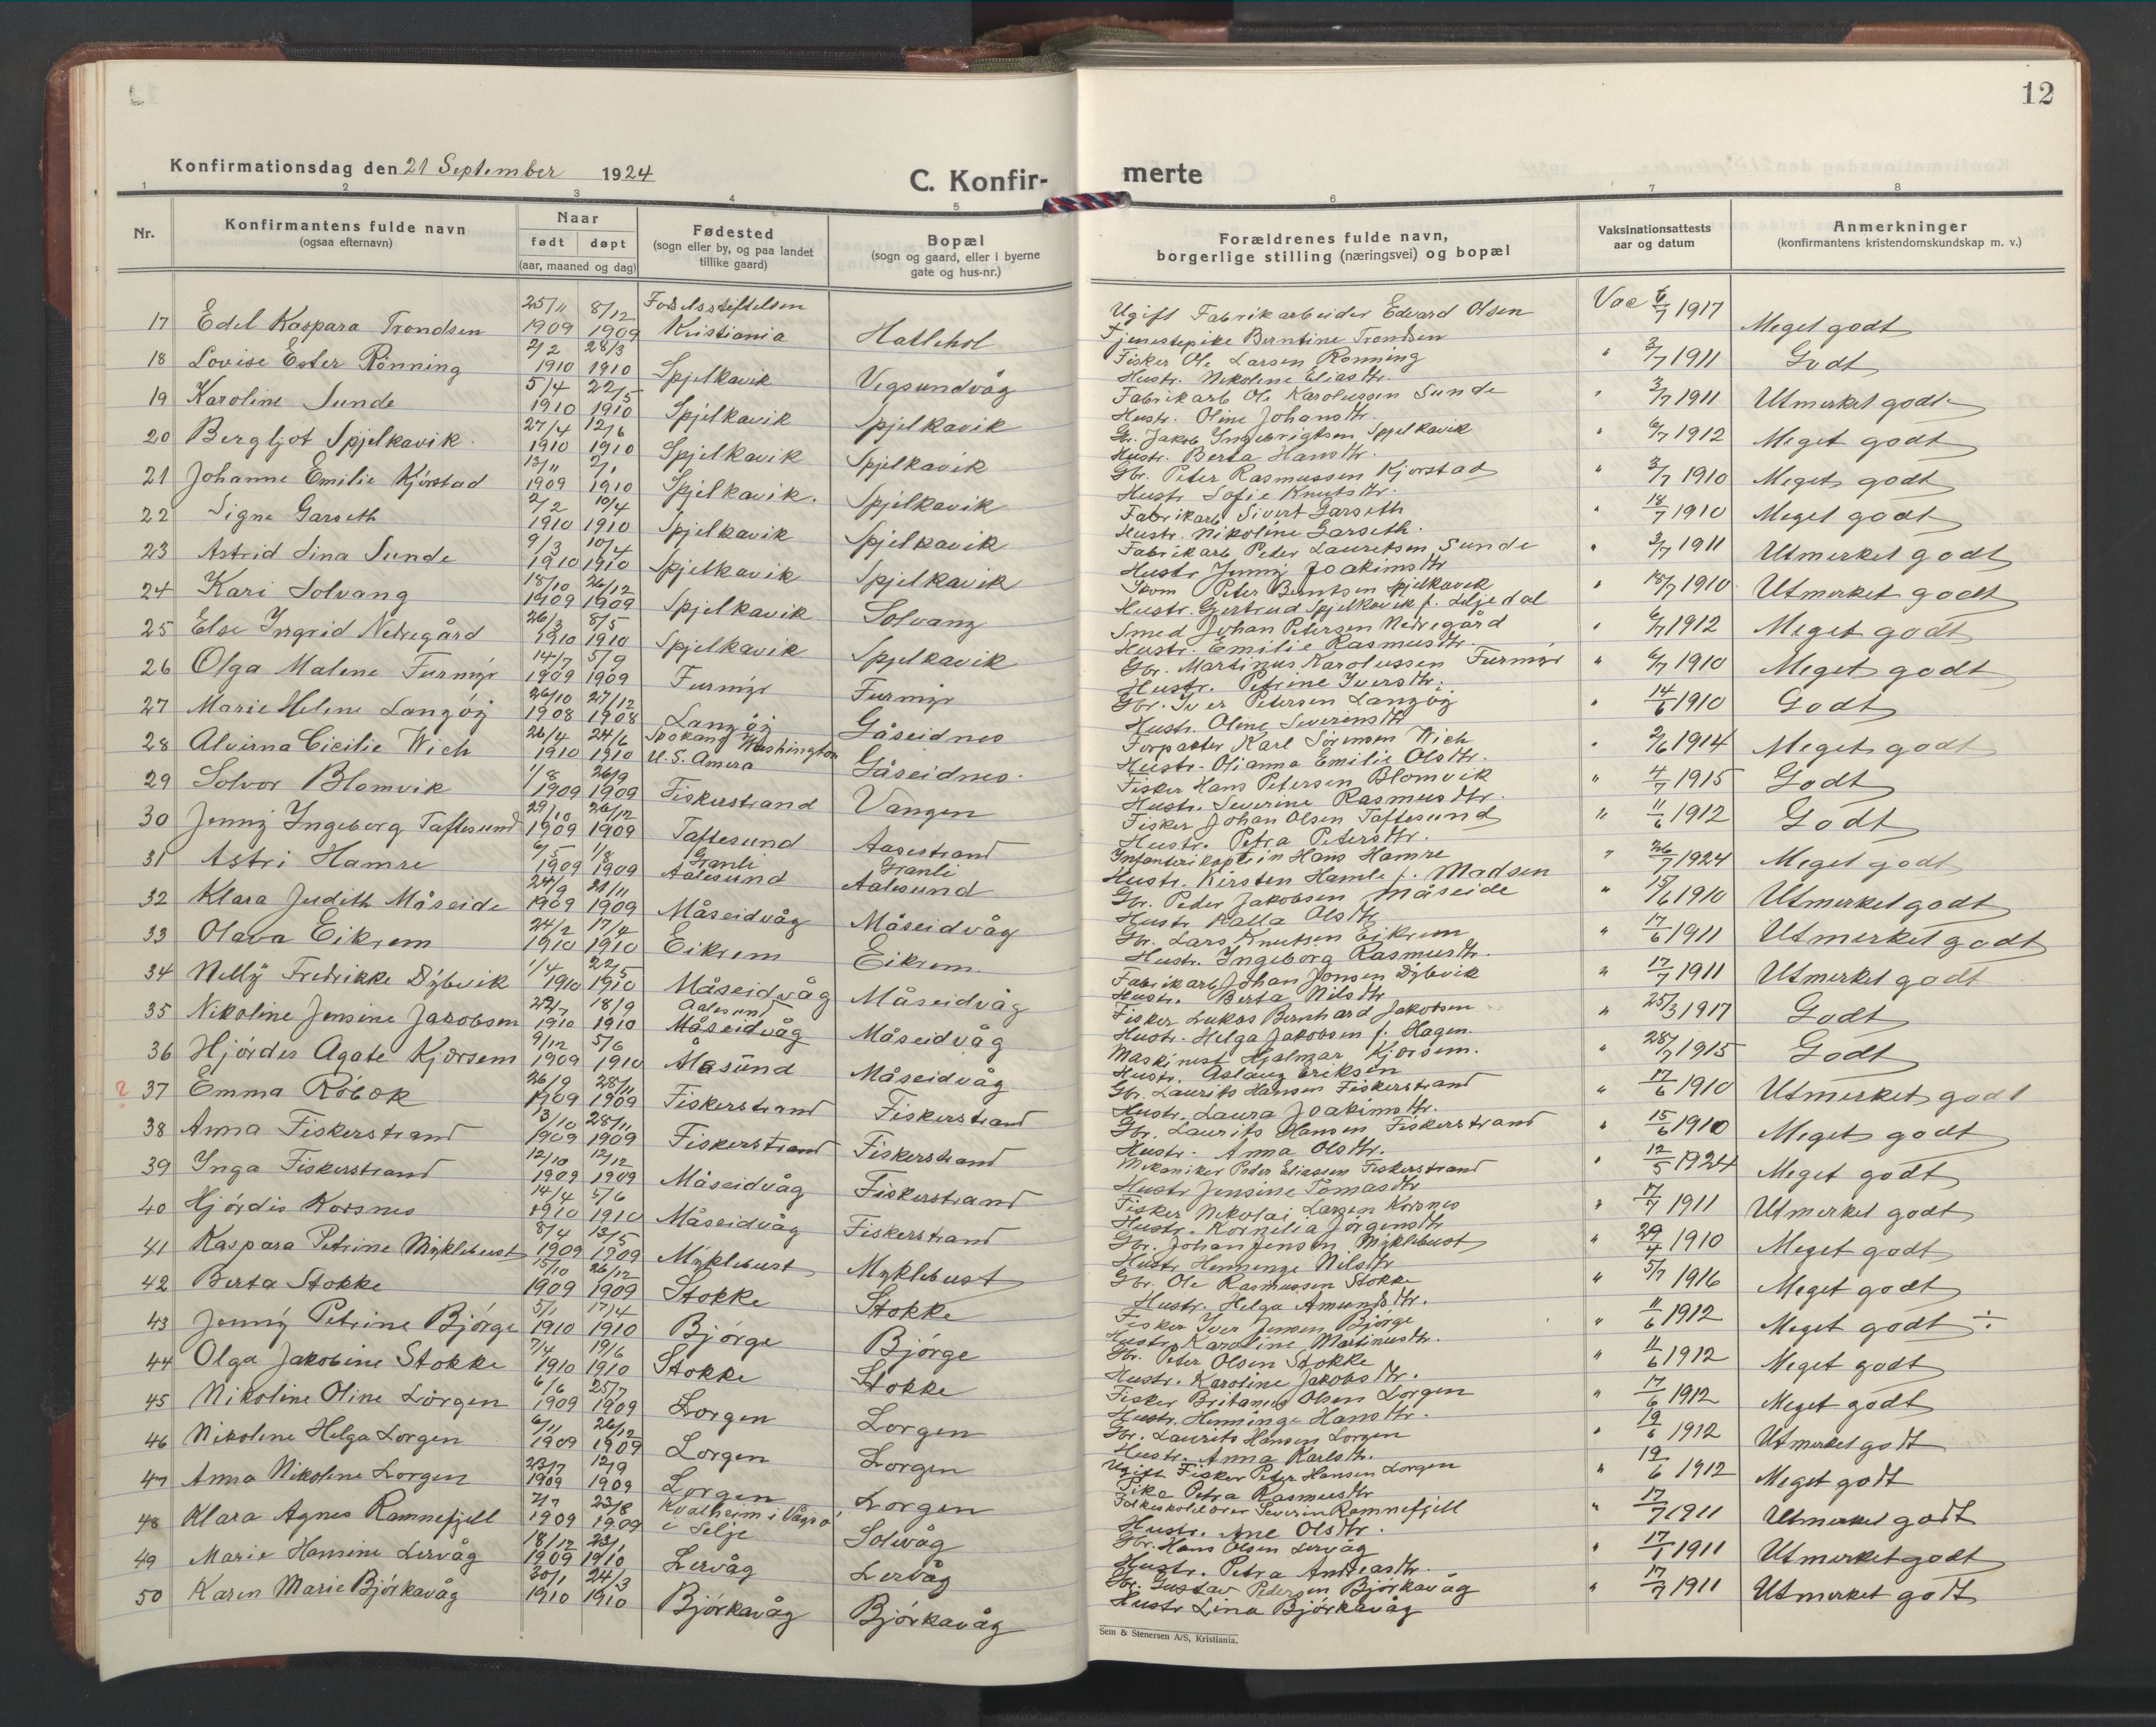 12
Konfirmationsdag den 21 September 1924
C. Konfir-merte
1 2 3 4 5 6 7 8
Nr.
Konfirmantens fulde navn
(ogsaa efternavn)
Naar
født døpt
(aar, maaned og dag)
Fødested
(sogn eller by, og paa landet
tillike gaard)
Bopæl
(sogn og gaard, eller i byerne
gate og hus-nr.)
Forældrenes fulde navn,
borgerlige stilling (næringsvei) og bopæl
Vaksinationsattests
aar og datum
Anmerkninger
(konfirmantens kristendomskundskap m. v.)
25/11 8/12 Fødselsstiftelsen Ugift Fabrikarbeider Edvard Olsen
17 Edel Kaspara Trondsen 1909 1909 Kristiania Hatlehol Tjenestepike Berntine Trondsen Vac 6/7 1917 Meget godt
2/2 28/3 Fisker Ole Larsen Rønning
18 Lovise Ester Rönning 1910 1910 Spjelkavik Vegsundvåg Hustr. Nikoline Eliasdtr. " 3/7 1911 Godt
5/4 22/5 Fabrikarb Ole Karolussen Sunde
19 Karoline Sunde 1910 1910 Spjelkavik Spjelkavik Hustr. Oline Johansdtr. " 3/7 1911 Utmerket godt
27/4 12/6 Gbr. Jakob Ingebrigtsen Spjelkavik
20 Bergljot Spjelkavik. 1910 1910 Spjelkavik Spjelkavik Hustr. Berta Hansdtr. " 6/7 1912 Meget godt
13/11 2/1 Gbr. Peter Rasmussen Kjørstad
21 Johanne Emilie Kjörstad 1909 1910 Spjelkavik. Spjelkavik Hustr Sofie Knutsdtr. " 3/7 1910 Meget godt
2/2 10/4 Fabrikarb Sivert Garseth
22 Signe Garseth 1910 1910 Spjelkavik Spjelkavik Hustr. Nikoline Garseth. " 18/7 1910 Meget godt
9/3 10/4 Fabrikarb Peter Lauritsen Sunde
23 Astrid Lina Sunde 1910 1910 Spjelkavik Spjelkavik Hustr Jenny Joakimsdtr " 3/7 1911 Utmerket godt
18/10 26/12 Skom Peter Berntsen Spjelkavik
24 Kari Solvang 1909 1909 Spjelkavik Solvang Hustr. Gjertrud Spjelkavik f. Liljedal " 18/7 1910 Utmerket godt
26/3 8/5 Smed Johan Petersen Nedregård
25 Else Ingrid Nedregård 1910 1910 Spjelkavik Spjelkavik Hustr. Emilie Rasmusdtr. " 6/7 1912 Meget godt
14/7 5/9 Gbr. Martinus Karolussen Furmyr
26 Olga Malene Furmyr 1909 1909 Furmyr Furmyr Hustr. Petrine Iversdtr. " 6/7 1910 Meget godt
26/10 27/12 Gbr. Iver Petersen Langöy
27 Marie Helene Langöy 1908 1908 Langöy Gåseidnes Hustr. Oline Severinsdtr " 14/6 1910 Godt
26/4 24/6 Spokane Washington Forpakter Karl Sørensen Wich
28 Alvirna Cicilie Wich 1910 1910 U.S. Amera Gåseidnes. Hustr. Olianna Emilie Olsdtr. " 2/6 1914 Meget godt
1/8 26/9 Fisker Hans Petersen Blomvik
29 Solvor Blomvik 1909 1909 Fiskerstrand Vangen Hustr. Severine Rasmusdtr. " 4/7 1915 Godt
29/10 26/12 Fisker Johan Olsen Taftesund
30 Jenny Ingeborg Taftesund 1909 1909 Taftesund Aasestrand Hustr. Petra Petersdtr. " 11/6 1912 Godt
6/5 1/8 Granli Granli Infanterikaptein Hans Hamre
31 Astri Hamre 1909 1909 Aalesund Aalesund Hustr. Kirsten Hamle f. Madsen " 26/7 1924 Meget godt
24/9 21/11 Gbr. Peder Jakobsen Måseide
32 Klara Judith Måseide 1909 1909 Måseidvåg Måseidvåg Hustr Kalla Olsdtr " 15/6 1910 Utmerket godt
24/2 17/4 Gbr. Lars Knutsen Eikrem
33 Olava Eikrem 1910 1910 Eikrem Eikrem Hustr. Ingeborg Rasmusdtr. " 17/6 1911 Utmerket godt
1/4 22/5 Fabrikarb Johan Jonsen Dybvik
34 Nelly Fredrikke Dybvik 1910 1910 Måseidvåg Måseidvåg Hustr. Berta Nilsdtr " 17/7 1911 Utmerket godt
22/7 18/9 Aalesund Fisker Lukas Bernhard Jakobsen
35 Nikoline Jensine Jacobsen 1910 1910 Måseidvåg Måseidvåg Hustr. Helga Jakobsen f. Hagen. " 25/3 1917 Godt
9/12 5/6 Maskinist Hjalmar Kjørsem.
36 Hjördis Agate Kjörsem 1909 1910 Ålesund Måseidvåg Hustr. Aslaug Eriksen " 28/7 1915 Godt
26/9 28/11 Gbr. Laurits Hansen Fiskerstrand
? 37 Emma Röbek 1909 1909 Fiskerstrand Fiskerstrand Hustr. Laura Joakimsdtr. " 17/6 1910 Utmerket godt
13/10 28/11 Gbr. Laurits Hansen Fiskerstrand
38 Anna Fiskerstrand 1909 1909 Fiskerstrand Fiskerstrand Hustr. Anna Olsdtr. " 15/6 1910 Meget godt
12/10 12/12 Mekaniker Peder Eliassen Fiskerstrand
39 Inga Fiskerstrand 1909 1909 Måseidvåg Fiskerstrand Hustr Jensine Tomasdtr " 12/5 1924 Meget godt
14/4 5/6 Fisker Nikolai Larsen Korsnes
40 Hjördis Korsnes 1910 1910 Måseidvåg Fiskerstrand Hustr. Kornelia Jørgensdtr " 17/7 1911 Utmerket godt
8/4 13/5 Gbr. Johan Jensen Myklebust
41 Kaspara Petrine Myklebust 1909 1909 Myklebust Myklebust Hustr Henninge Nilsdtr " 29/4 1910 Meget godt
15/10 26/12 Gbr. Ole Rasmussen Stokke
42 Berta Stokke 1909 1909 Stokke Stokke Hustr. Helga Amundsdtr. " 5/7 1916 Meget godt
5/1 17/4 Fisker Iver Jensen Björge
43 Jenny Petrine Björge 1910 1910 Björge Björge Hustr Karoline Martinusdtr. " 11/6 1912 Meget godt ÷
7/4 19/6 Gbr. Peter Olsen Stokke
44 Olga Jakobine Stokke 1910 1910 Stokke Stokke Hustr. Karoline Jakobsdtr. " 11/6 1912 Meget godt
6/6 25/7 Fisker Britanus Olsen Lorgen
45 Nikoline Oline Lorgen 1909 1909 Lorgen Lorgen Hustr. Henninge Hansdtr. " 17/6 1912 Meget godt
6/11 26/12 Gbr. Laurits Hansen Lorgen
46 Nikoline Helga Lorgen 1909 1909 Lorgen Lorgen Hustr. Anna Karlsdtr. " 19/6 1912 Utmerket godt
23/7 12/9 Ugift Fisker Peter Hansen Lorgen
47 Anna Nikoline Lorgen 1909 1909 Lorgen Lorgen Pike Petra Rasmusdtr " 19/6 1912 Meget godt
7/7 23/8 Kvalheim i Vågsö Folkeskolelærer Severin Ramnefjell
48 Klara Agnes Ramnefjell 1909 1909 i Selje Solevåg Hustr. Ane Olsdtr. " 17/7 1911 Utmerket godt
18/12 23/1 Gbr. Hans Olsen Lervåg
49 Marie Hansine Lervåg 1909 1910 Lervåg Lervåg Hustr. Petra Andreasdtr. " 17/1 1911 Utmerket godt
30/1 24/3 Gbr. Gustav Petersen Björkavåg
50 Karen Marie Björkavåg 1910 1910 Björkavåg Björkavåg Hustr Lina Björkavåg " 17/7 1911 Utmerket godt
Sem & Stenersen A/S, Kristiania.